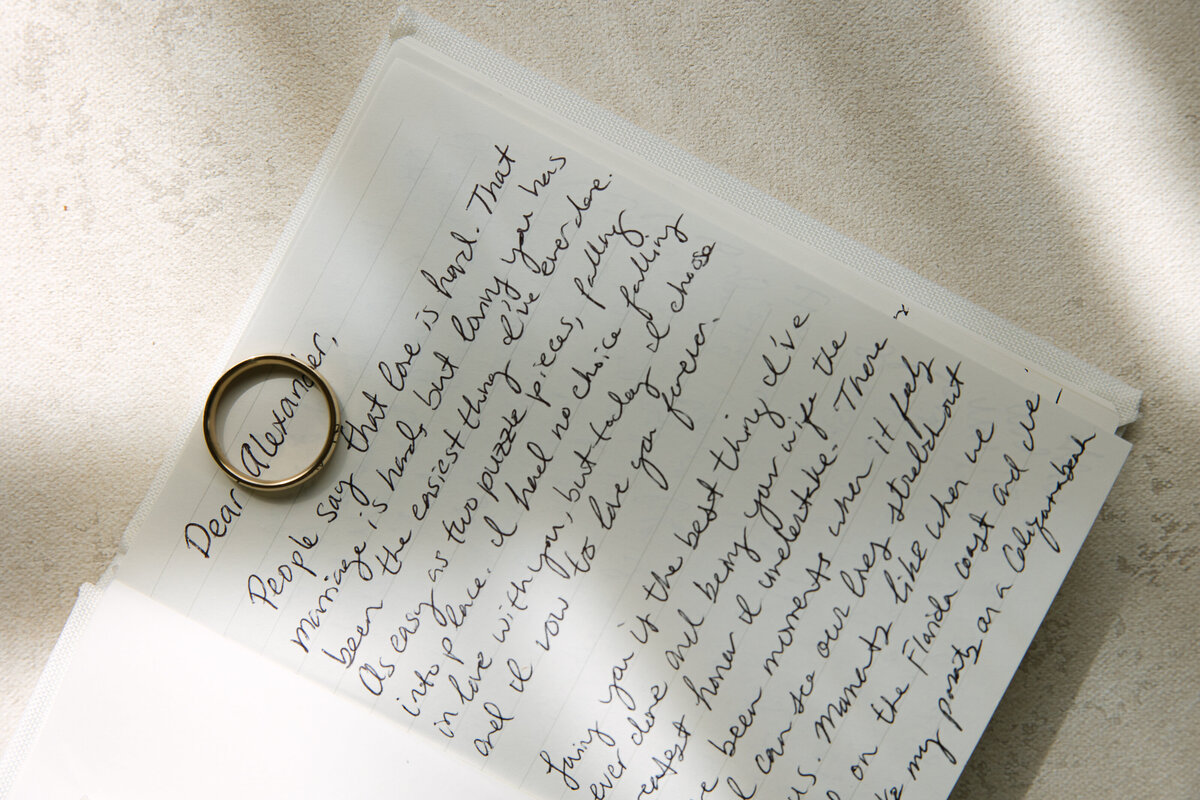 Dear Alexander,
People say that love is hard. That
marriage is hard, but loving you has
been the easiest thing I've ever done.
As easy as two puzzle pieces, falling
into place. I had no choice falling
in love with you, but today I choose
and I vow to love you forever.
Loving you is the best thing I've
ever done and being your wife the
greatest honor I undertake. There
been moments when it feels
I can see our lives stretched out
us. Moments like when we
on the Florida coast and are
my parents on a California beach